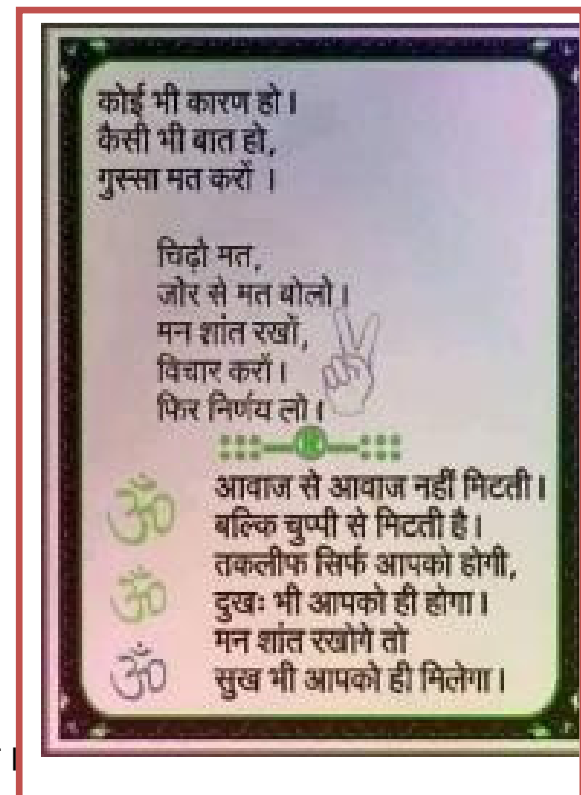 कोई भी कारण हो।
कैसी भी बात हो,
गुस्सा मत करों ।
चिढ़ो मत,
जोर से मत बोलो।
मन शांत रखों,
विचार करों।
फिर निर्णय लो।
ॐ
आवाज से आवाज नहीं मिटती।
बल्कि चुप्पी से मिटती है।
तकलीफ सिर्फ आपको होगी,
ॐ
दुखः भी आपको ही होगा।
मन शांत रखोगे तो
ॐ
सुख भी आपको ही मिलेगा।